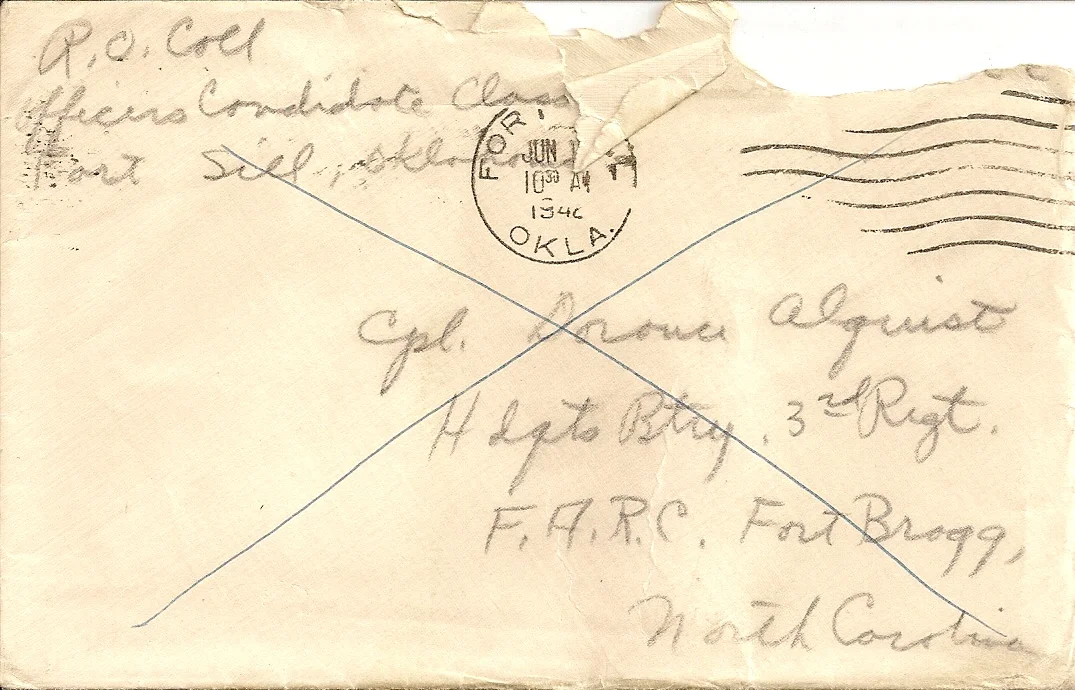 R.O. Coll
Officers Candidate Class
Fort Sill, Oklahoma
FORT
JUN
10 30 AM
194
OKLA.
Cpl. Alquist
Hdqts Btry. 3rd Regt.
F.A.R.C. Fort Bragg,
North Carolina